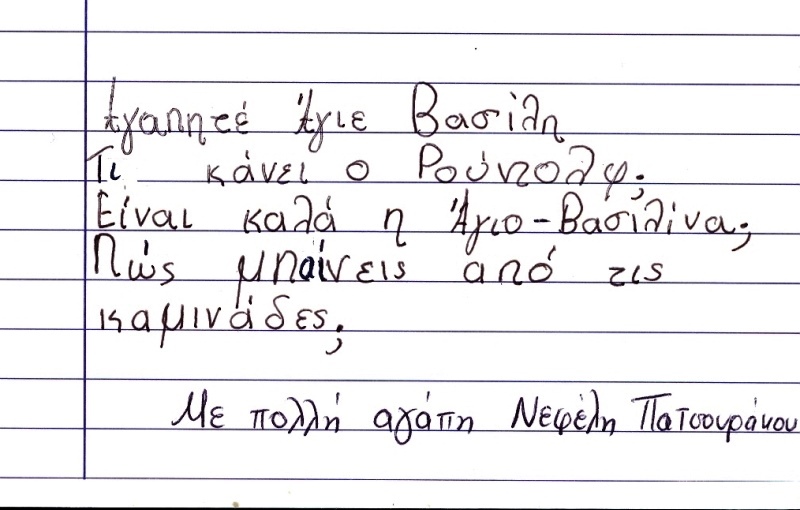 Αγαπητέ Άγιε Βασίλη
Τι κάνει ο Ρούπολφ;
Είναι καλά η Άγιο-Βασιλίνα;
Πώς μπαίνεις από τις
καμινάδες;
Με πολλή αγάπη Νεφέλη Πατσουράκου